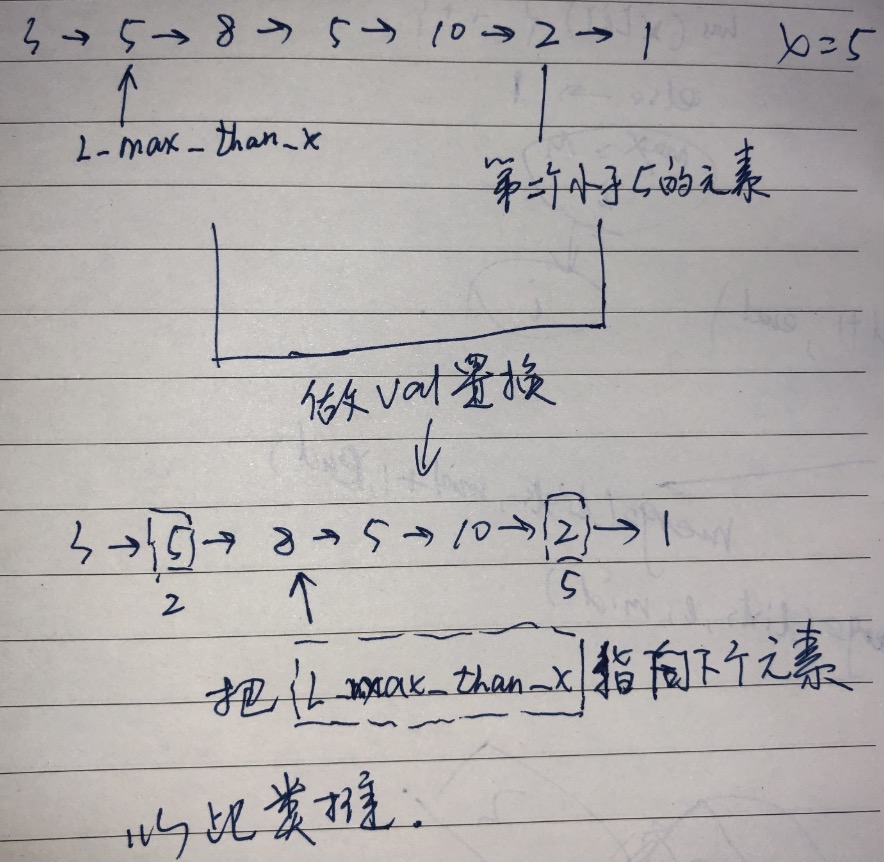 3 → 5 → 8 → 5 → 10 → 2 → 1 x=5
L_max_than_x
第二个小于5的元素
做val置换
3 → 5 → 8 → 5 → 10 → 2 → 1
2 5
把 L_max_than_x 指向下个元素
以此类推.